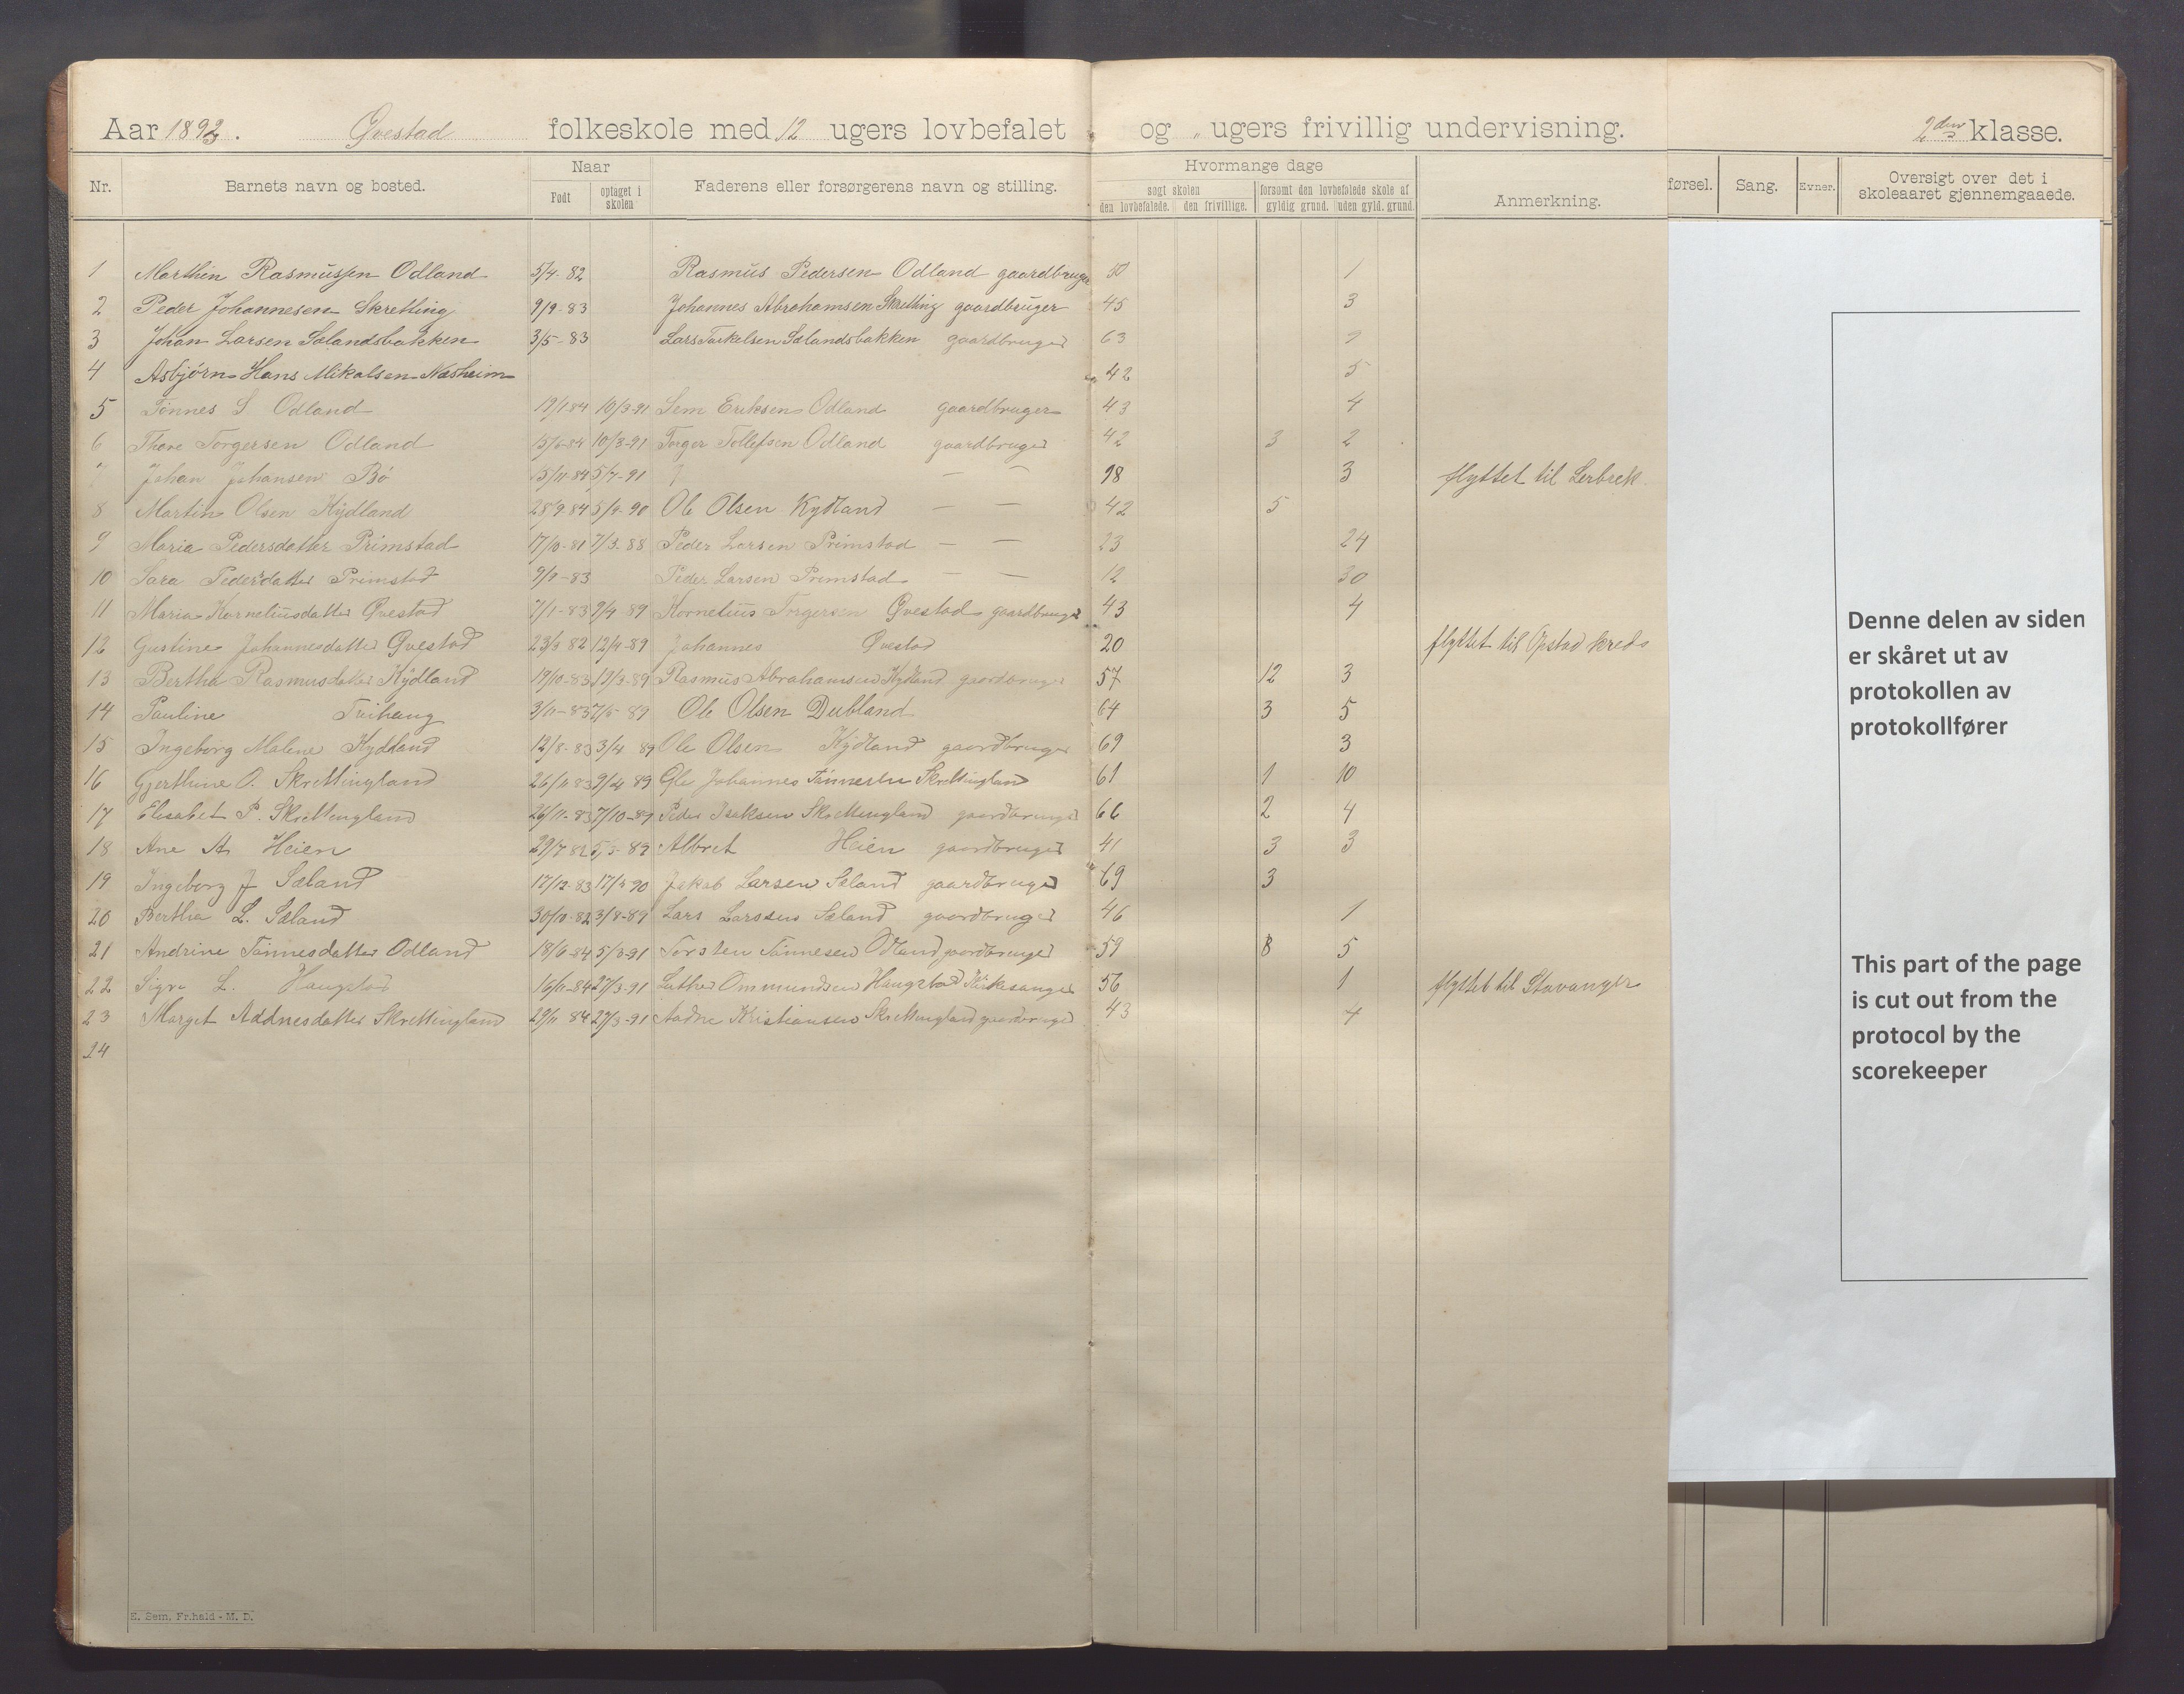 Aar 1892. Qvestad folkeskole med 12 ugers lovbefalet og " ugers frivillig undervisning. 2den klasse.
Nr. Barnets navn og bosted. Naar Født optaget i skolen Faderens eller forsørgerens navn og stilling. Hvormange dage søgt skolen den lovbefalede. den frivillige. forsømt den lovbefalede skole af gyldig grund. uden gyld. grund. Anmerkning. førsel. Sang. Evner. Oversigt over det i skoleaaret gjennemgaaede.
1 Marthin Rasmussen Odland 5/4-82 Rasmus Pedersen Odland gaardbruger 50 1
2 Peder Johannesen Skretting 9/9-83 Johannes Abrahamsen Skretting gaardbruger 45 3
3 Johan Larsen Sælandsbakken 3/5-83 Lars Torkelsen Sælandsbakken gaardbruger 63
4 Asbjørn Hans Mikalsen Næsheim 42 5
5 Tønnes S Odland 19/1 84 10/3-91 Sem Eriksen Odland gaardbruger 43 4
6 Thore Torgersen Odland 15/6-84 10/3-91 Torger Tollefsen Odland gaardbruger 42 3 2
" Johan Johansen Bø 15/11-84 5/7-91 — — 18 3 flyttet til Lerbrek
8 Martin Olsen Kydland 28/9-84 5/9-90 Ole Olsen Kydland — — 42 5
9 Maria Pedersdatter Primstad 17/10-81 7/3-88 Peder Larsen Primstad — — 23 24
10 Sara Pedersdatter Primstad 9/9-83 Peder Larsen Primstad — — 12 30
11 Maria Kornetiusdatter Qvestad 7/1-83 9/4-89 Kornetius Torgersen Qvestad gaardbruger 43 4
12 Gustine Johannesdatter Qvestad 23/3 82 12/4-89 Johannes Qvestad 20 flyttet til Opstad kreds
13 Bertha Rasmusdatter Kydland 19/10-83 12/3-89 Rasmus Abrahamsen Kydland gaardbruger 57 12 3
14 Pauline Tuihaug 3/11-83 7/5-89 Ole Olsen Dubland 64 3 5
15 Ingeborg Malene Kydland 12/8-83 3/4 89 Ole Olsen Kydland gaardbruger 69 3
16 Gjerthine O. Skrettingland 26/11 83 9/4 89 Ole Johannes Tønnesen Skrettingland 61 1 10
17 Elisabet P. Skrettingland 26/11-83 7/10-89 Peder Isaksen Skrettingland gaardbruger 66 2 4
18 Ane A. Heien 29/7 82 5/5-89 Albret Heien gaardbruger 41 3 3
19 Ingeborg J Sæland 12/12-83 17/5 90 Jakob Larsen Sæland gaardbruger 69 3
20 Bertha L. Sæland 30/10-82 3/8-89 Lars Larssen Sæland gaardbruger 46 1
21 Andrine Tønnesdatter Odland 18/6-84 5/3-91 Torsten Tønnesen Odland gaardbruger 59 8 5
22 Sigve L. Haugstad 16/11-84 27/3-91 Luther Ommundsen Haugstad Kirkesanger 56 1 flyttet til Stavanger
23 Marget Adnesdatter Skrettingland 29/11 84 29/3-91 Aadne Kristiansen Skrettingland gaardbruger 43 4
24
E. Sem, Fr.hald - M. D.
Denne delen av siden
er skåret ut av
protokollen av
protokollfører
This part of the page
is cut out from the
protocol by the
scorekeeper